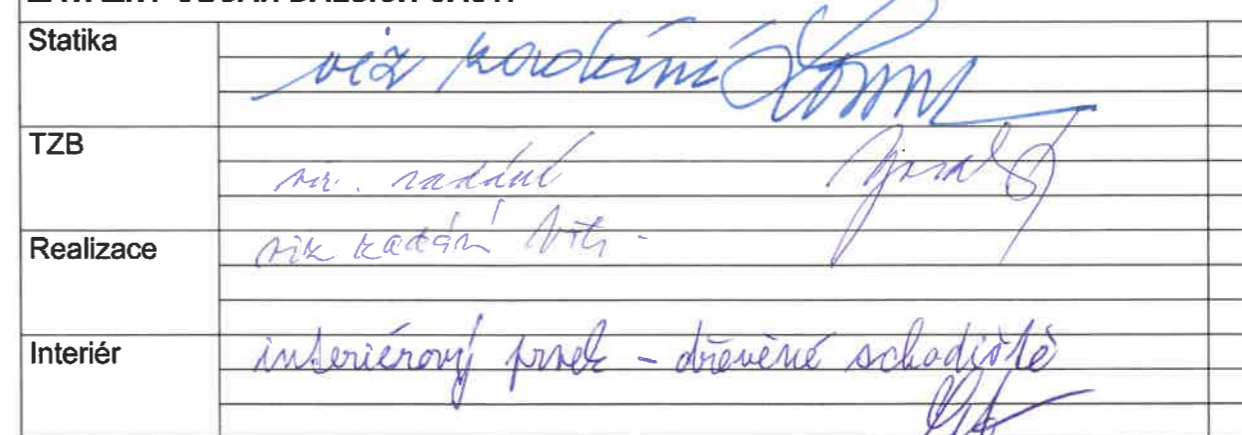 Statika
viz zadání
TZB
viz. zadání
Realizace
viz zadání
Interiér
interiérový prvek - dřevěné schodiště